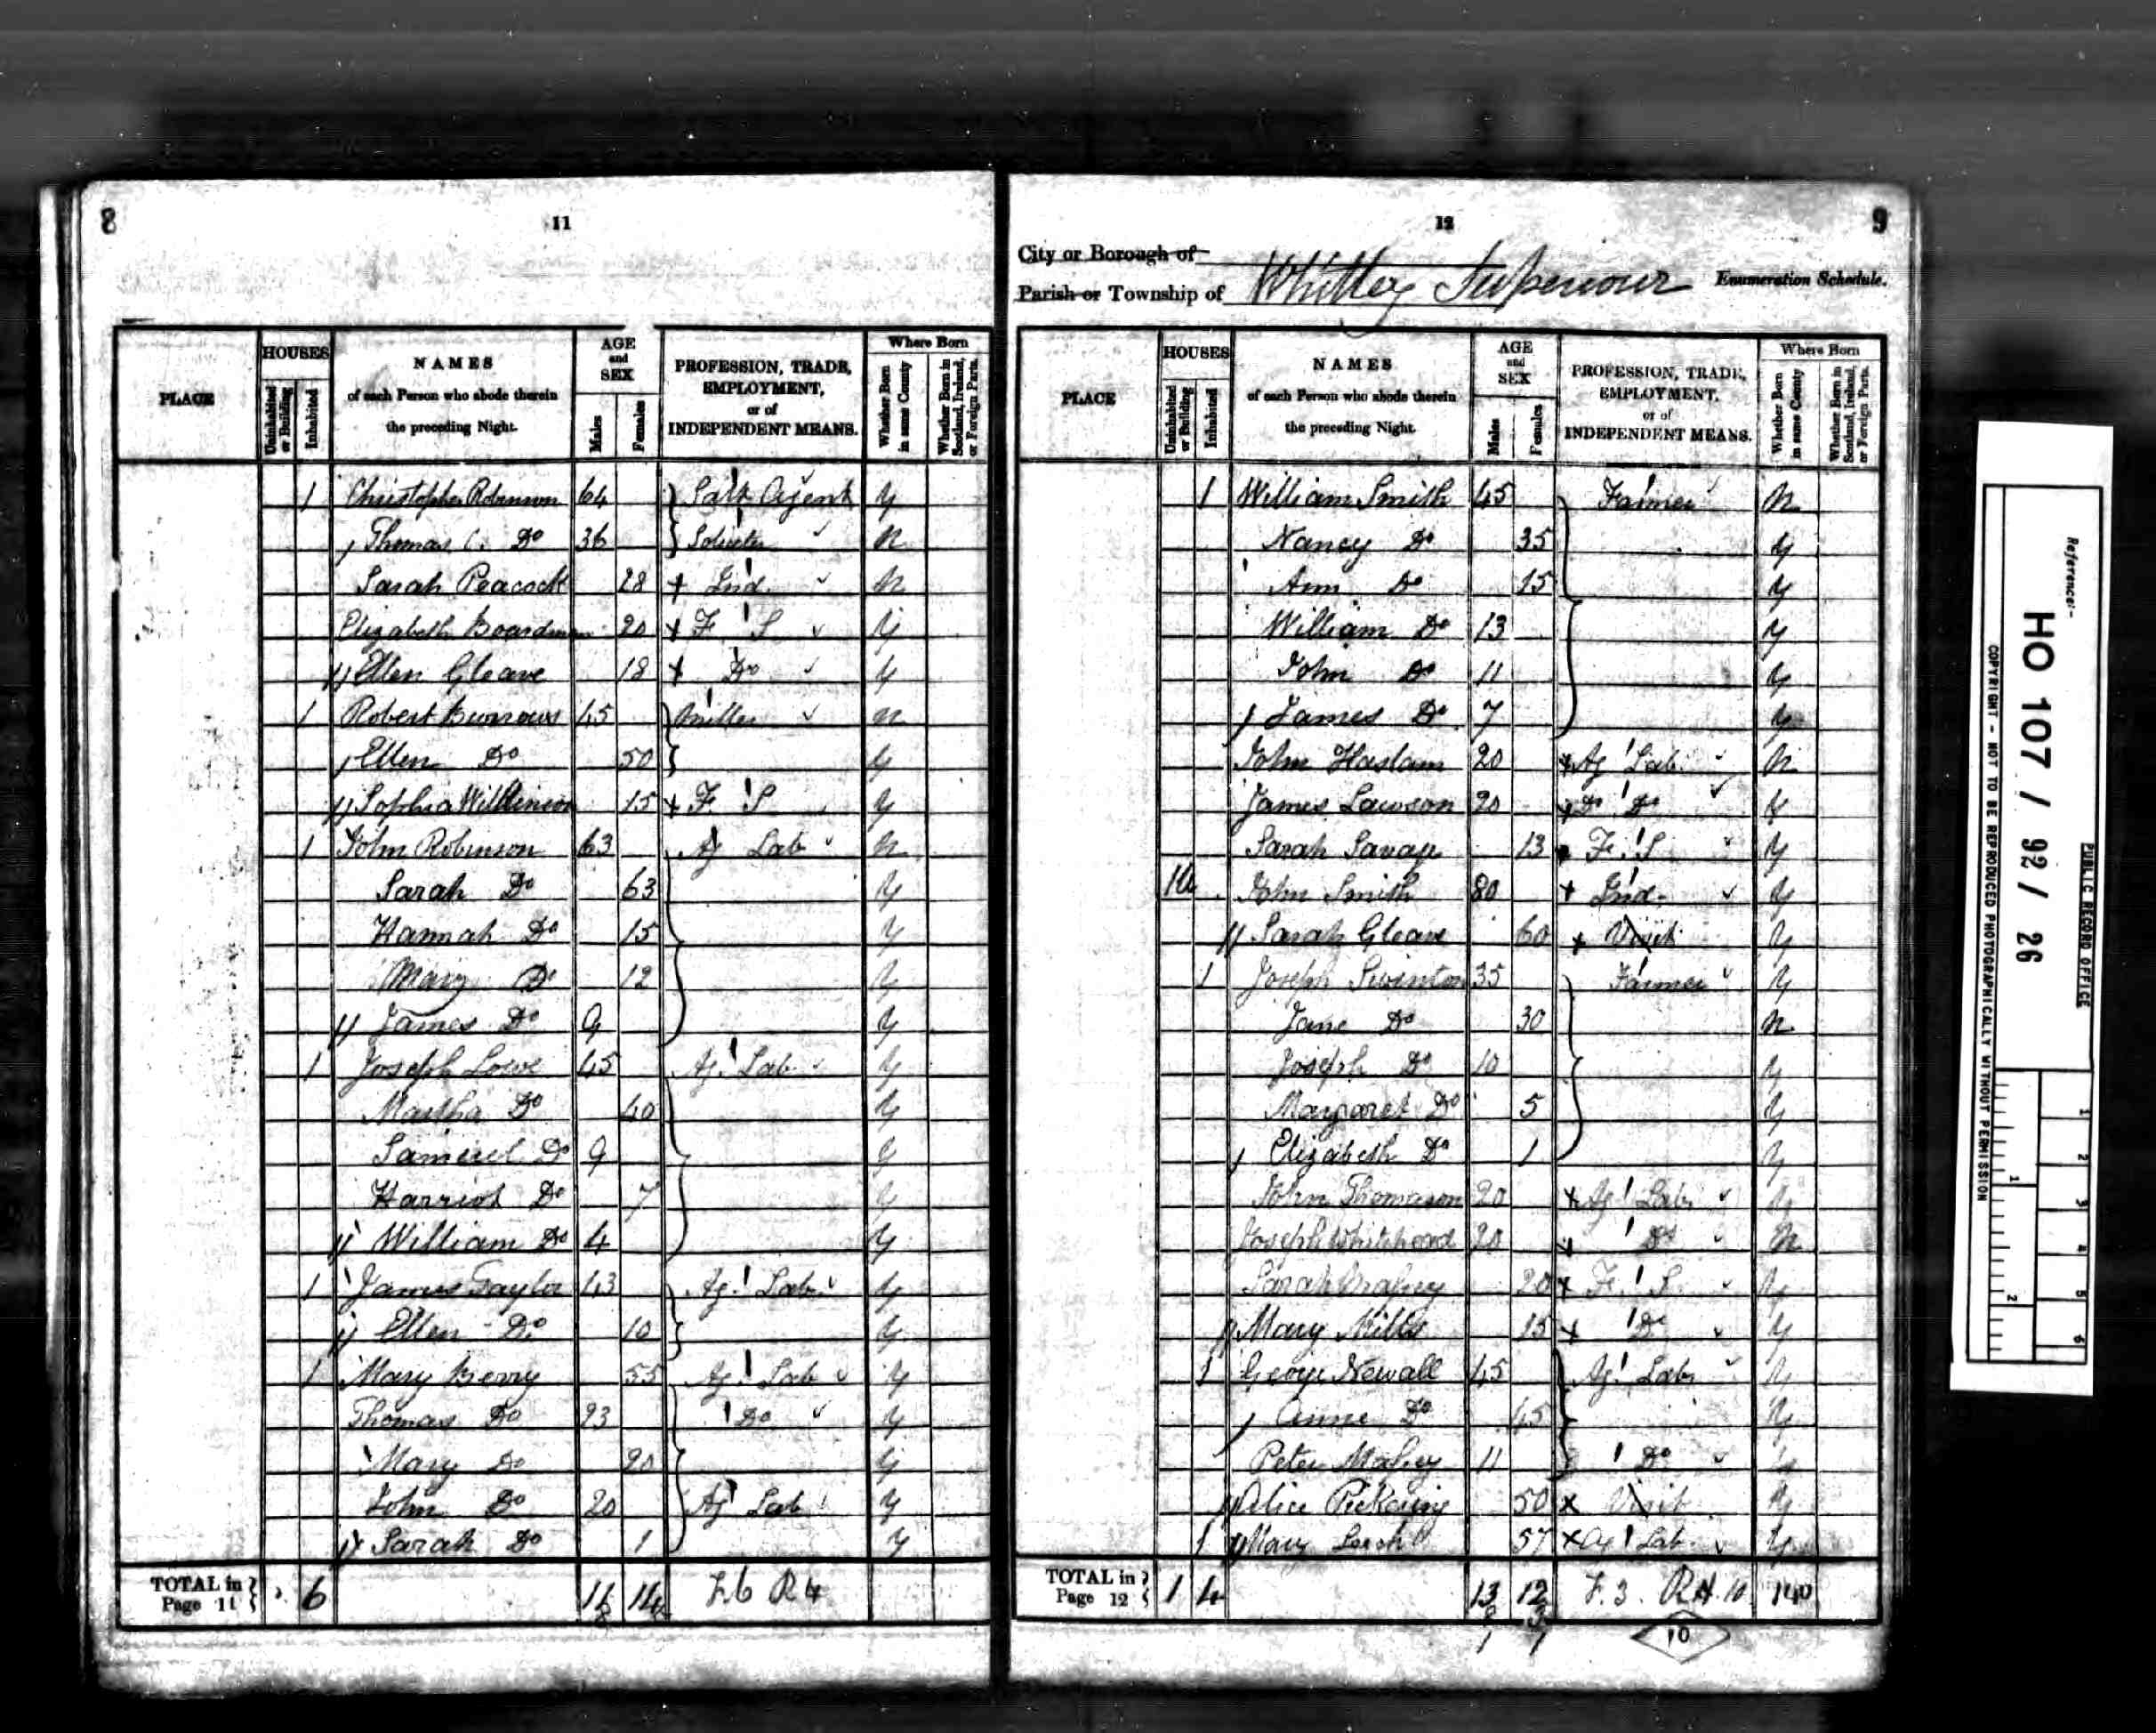 8
11
HOUSES
AGE and SEX
Where Born
PLACE
Uninhabited or Building
Inhabited
NAMES of each Person who abode therein the preceding Night.
Males
Females
PROFESSION, TRADE, EMPLOYMENT, or of INDEPENDENT MEANS.
Whether Born in same County
Whether Born in Scotland, Ireland, or Foreign Parts.
1 Christopher Robinson 64 Salt Agent Y
Thomas C. Do 36 Solicitor N
Sarah Peacock 28 Ind. N
Elizabeth Boardman 20 F S Y
Ellen Gleave 18 Do Y
1 Robert Burrows 45 Miller N
Ellen Do 50 Y
Sophia Wilkinson 15 F S Y
1 John Robinson 63 Ag Lab N
Sarah Do 63 Y
Hannah Do 15 Y
Mary Do 12 Y
James Do 9 Y
1 Joseph Lowe 45 Ag. Lab Y
Martha Do 40 Y
Samuel Do 9 Y
Harriot Do 7 Y
William Do 4 Y
1 James Taylor 43 Ag. Lab Y
Ellen Do 10 Y
1 Mary Berry 55 Ag. Lab Y
Thomas Do 23 Do Y
Mary Do 20 Y
John Do 20 Ag Lab Y
Sarah Do 1 Y
TOTAL in Page 11 6 11 14 F.6 R 4
12
9
City or Borough of
Parish or Township of Whitley Superiour Enumeration Schedule.
HOUSES
AGE and SEX
Where Born
PLACE
Uninhabited or Building
Inhabited
NAMES of each Person who abode therein the preceding Night.
Males
Females
PROFESSION, TRADE, EMPLOYMENT, or of INDEPENDENT MEANS.
Whether Born in same County
Whether Born in Scotland, Ireland, or Foreign Parts.
1 William Smith 45 Farmer N
Nancy Do 35 Y
Ann Do 15 Y
William Do 13 Y
John Do 11 Y
James Do 7 Y
John Haslam 20 Ag Lab N
James Lawson 20 Do Do Y
Sarah Savage 13 F. S Y
John Smith 80 Ind. Y
Sarah Gleave 60 Visit Y
1 Joseph Swinton 35 Farmer Y
Jane Do 30 N
Joseph Do 10 Y
Margaret Do 5 Y
Elizabeth Do 1 Y
John Thomason 20 Ag Lab Y
Joseph Whitehead 20 Do N
Sarah 20 F. S. Y
Mary Mills 15 Do Y
1 George Newall 45 Ag Lab Y
Anne Do 45 Y
Peter 11 Do Y
Alice Pickering 50 Visit Y
1 Mary Leech 57 Ag Lab Y
TOTAL in Page 12 1 4 13 12 F. 3.
10
Reference:-
HO 107 / 92 / 26
PUBLIC RECORD OFFICE
COPYRIGHT - NOT TO BE REPRODUCED PHOTOGRAPHICALLY WITHOUT PERMISSION
1 2 3 4 5 6
1 2